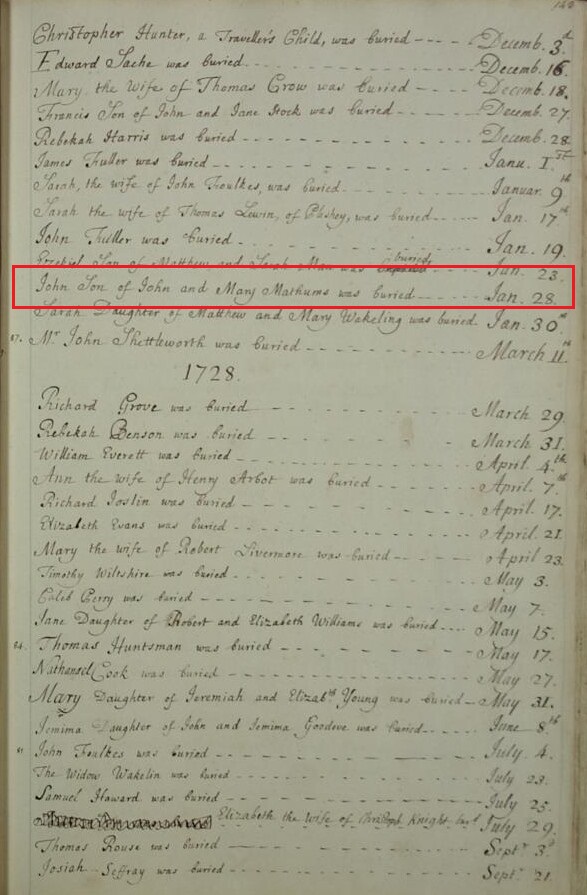 Christopher Hunter, a Traveller's Child, was buried ---- Decemb. 3.d
Edward Sache was buried ---- Decemb. 16
Mary the Wife of Thomas Crow was buried ---- Decemb. 18.
Francis Son of John and Jane Hock was buried ---- Decemb. 27.
Rebekah Harris was buried ---- Decemb. 28.
James Fuller was buried ---- Janu. 1.st
Sarah, the wife of John Foulkes, was buried ---- Januar. 9.th
Sarah the wife of Thomas Lewin, of Plashey, was buried ---- Jan. 17.th
John Fuller was buried ---- Jan. 19.
Ezekiel Son of Matthew and Sarah Man was buried Jan. 23.
John Son of John and Mary Mathums was buried ---- Jan. 28.
Sarah Daughter of Matthew and Mary Wakeling was buried Jan. 30.th
Mr. John Shettleworth was buried ---- March 11.th
1728.
Richard Grove was buried ---- March 29.
Rebekah Benson was buried ---- March 31.
William Everett was buried ---- April 4.th
Ann the wife of Henry Arbot was buried ---- April 7.th
Richard Joslin was buried ---- April 17.
Elizabeth Evans was buried ---- April 21.
Mary the wife of Robert Livermore was buried ---- April 23.
Timothy Wiltshire was buried ---- May 3.
Caleb Perry was buried ---- May 7.
Jane Daughter of Robert and Elizabeth Williams was buried ---- May 15.
Thomas Huntsman was buried ---- May 17.
Nathanael Cook was buried ---- May 27.
Mary Daughter of Jeremiah and Elizab.th Young was buried -- May 31.
Jemima Daughter of John and Jemima Goodeve was buried ---- June 8.th
John Foulkes was buried ---- July 4.
The Widow Wakelin was buried ---- July 23.
Samuel Howard was buried ---- July 25.
Elizabeth the Wife of Christoph Knight July 29.
Thomas Rouse was buried ---- Sept.r 3.d
Josiah Seffray was buried ---- Sept.r 21.